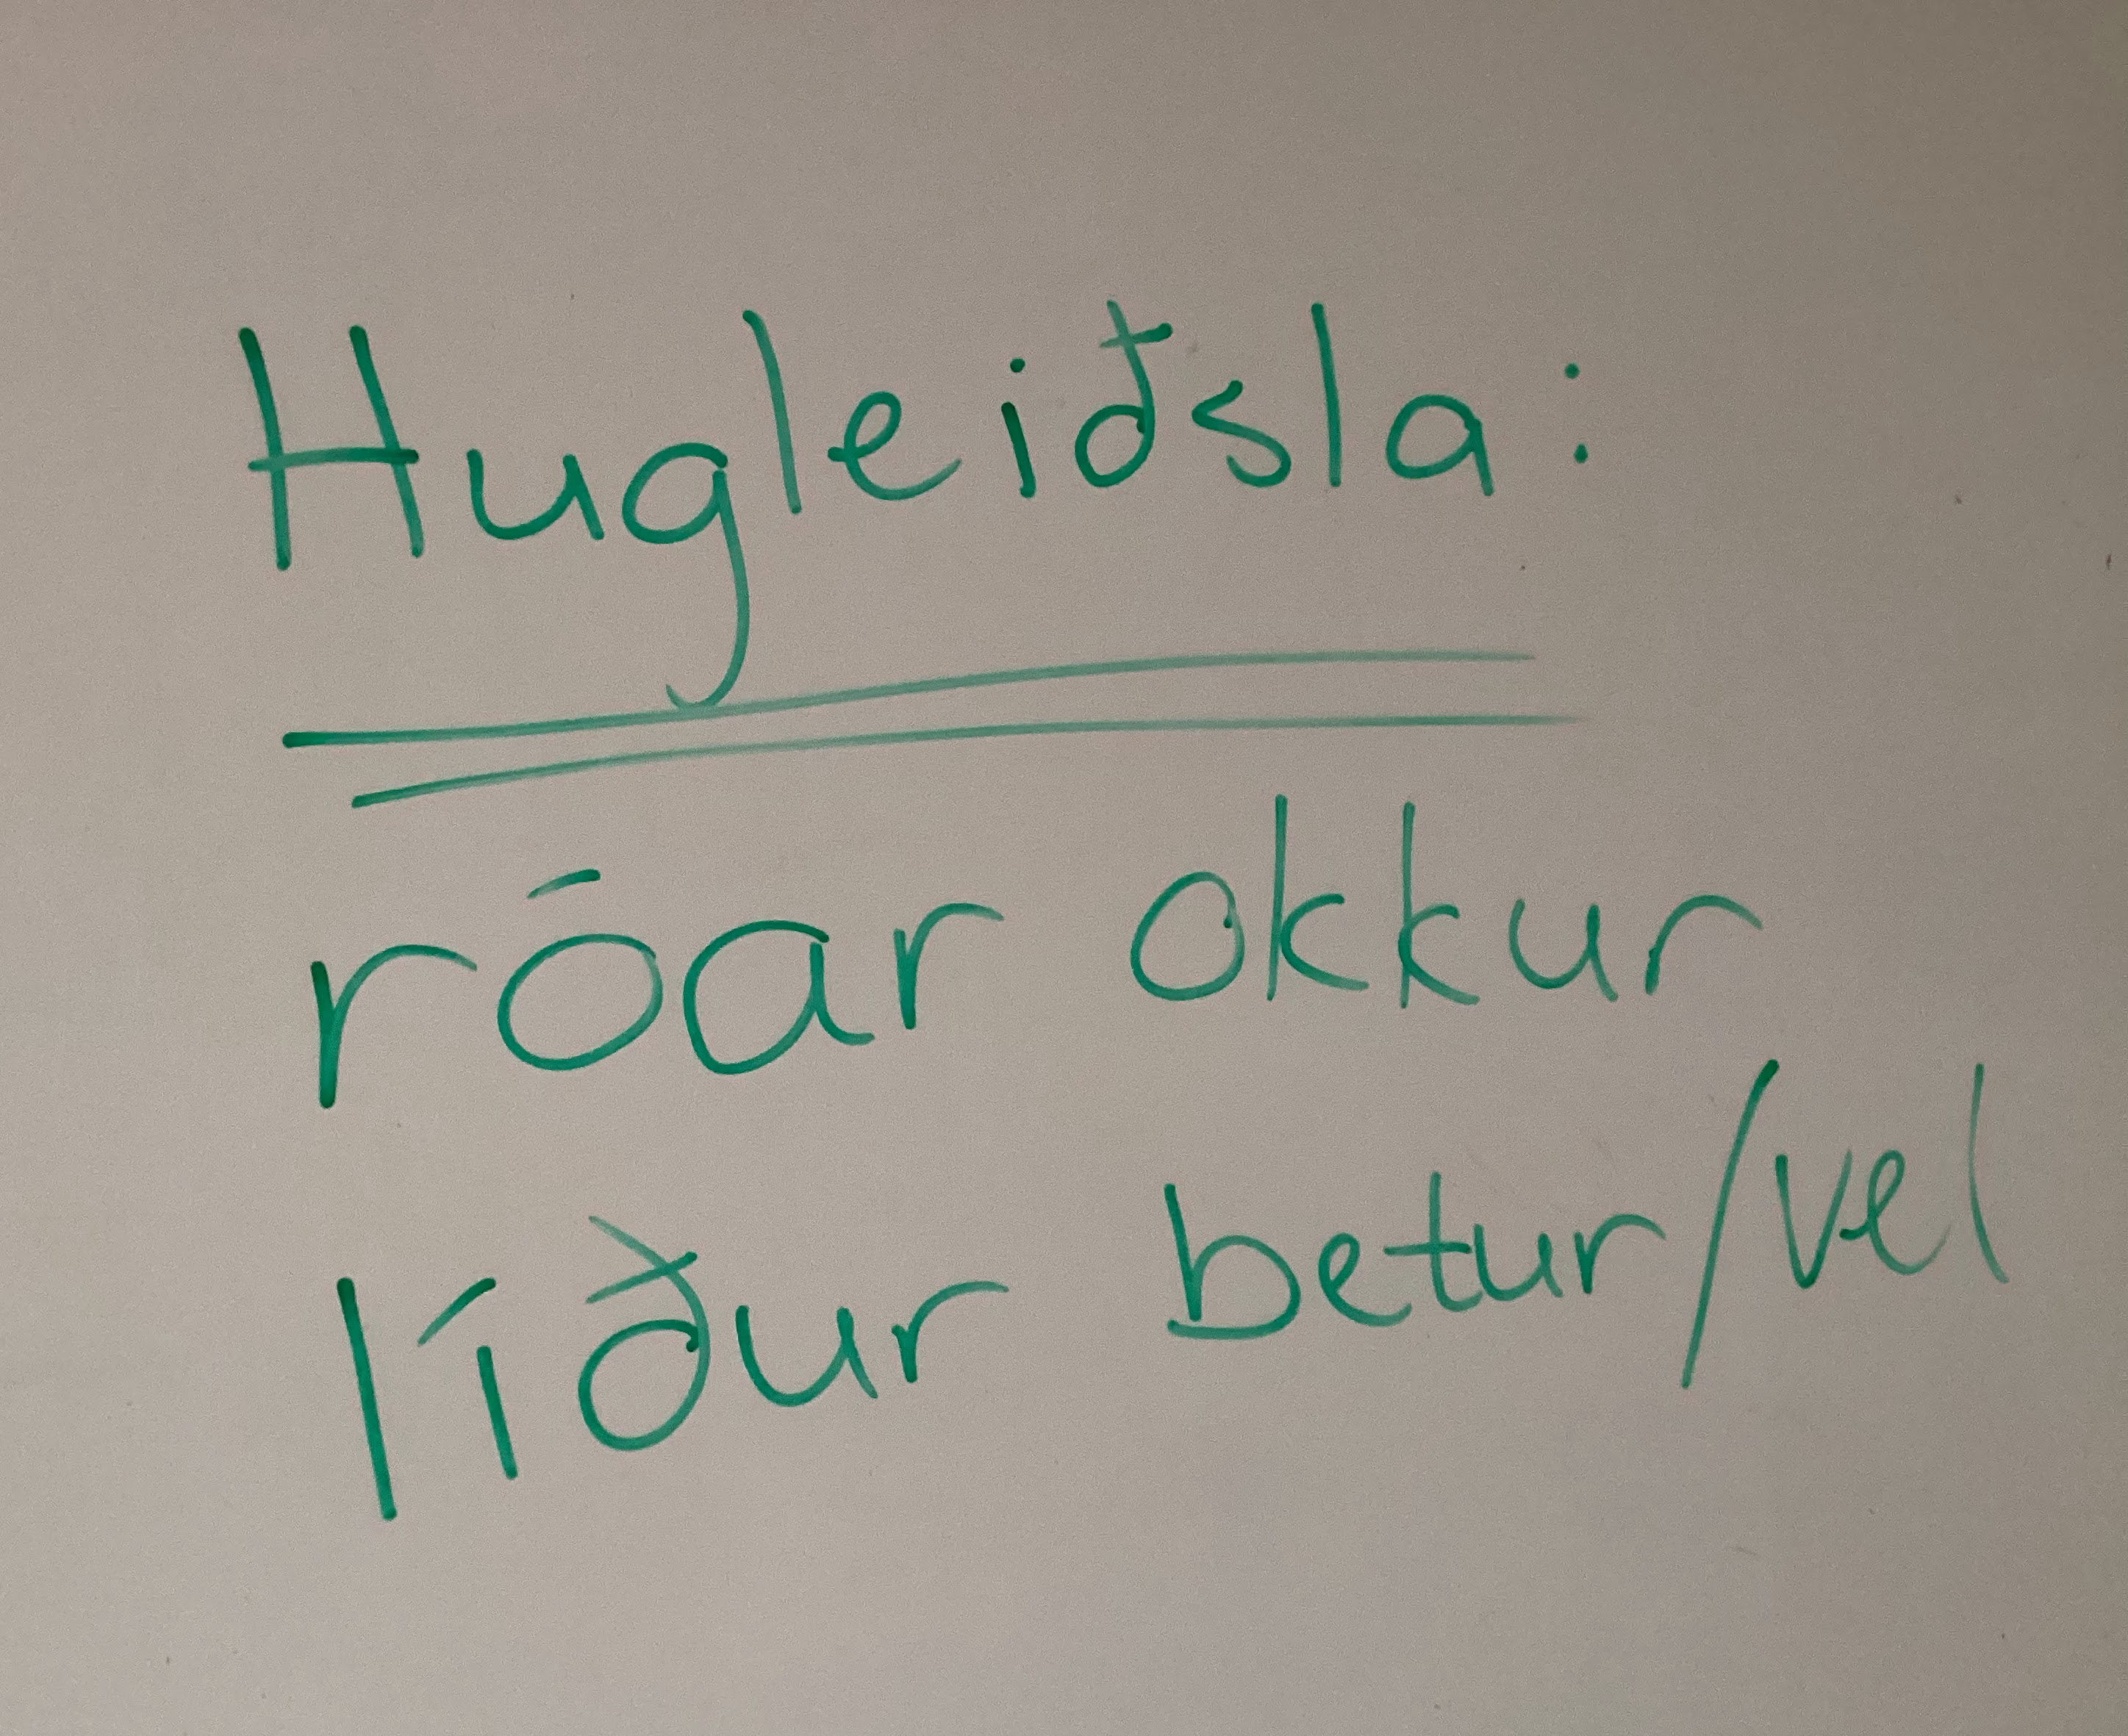 Hugleiðsla:
róar okkur
líður betur/vel